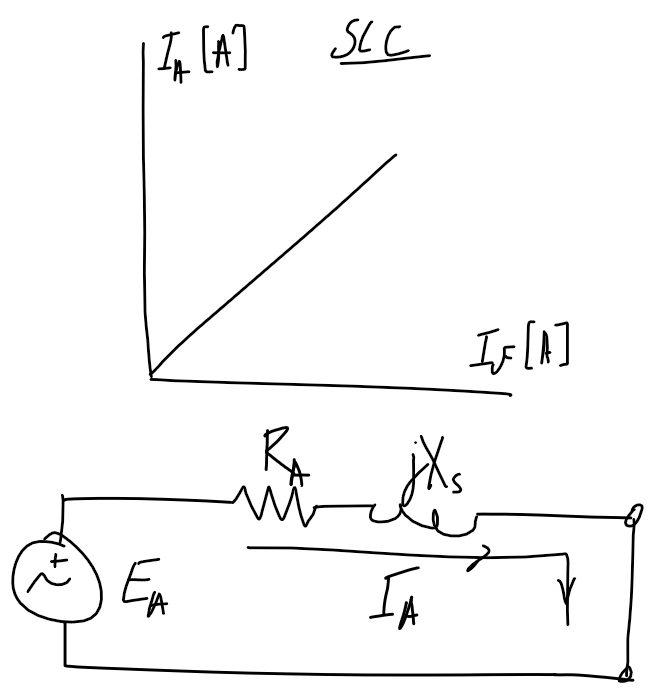 I_A [A]
SCC
I_F [A]
R_A
jX_s
+
E_A
I_A